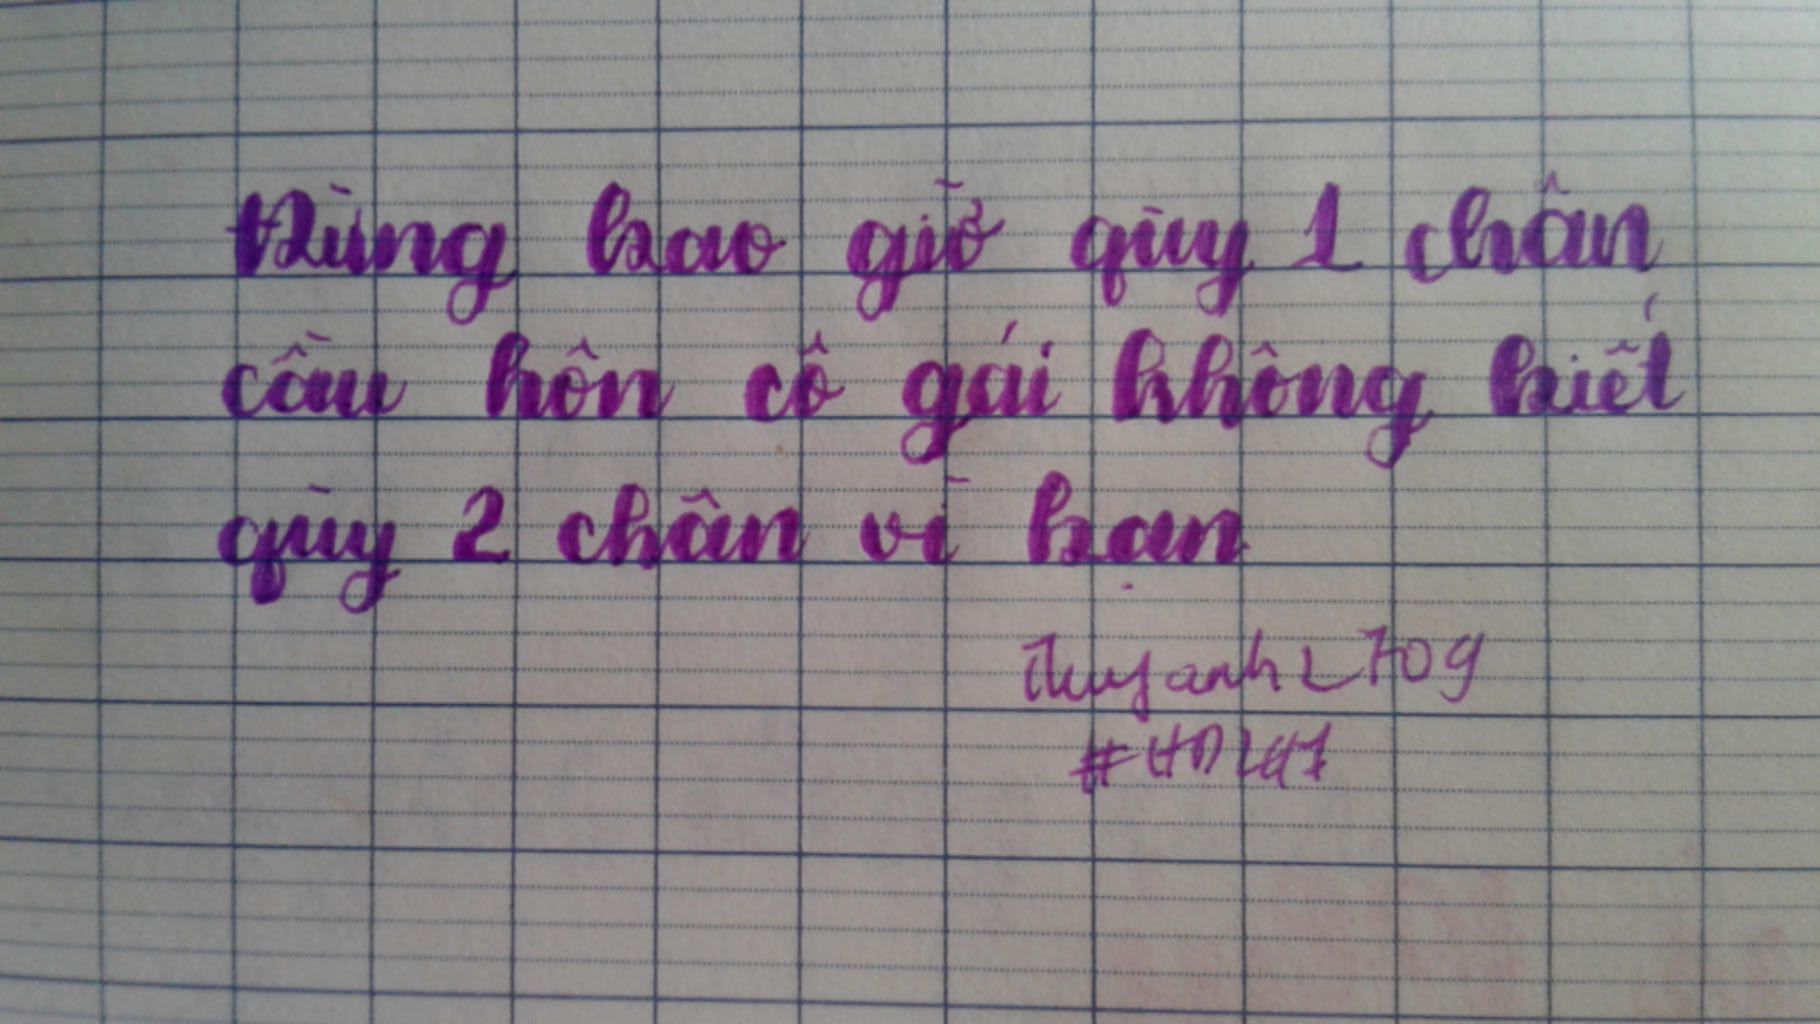 Đừng bao giờ qùy 1 chân
cầu hôn cô gái không biết
qùy 2 chân vì bạn
Thuyanh2709